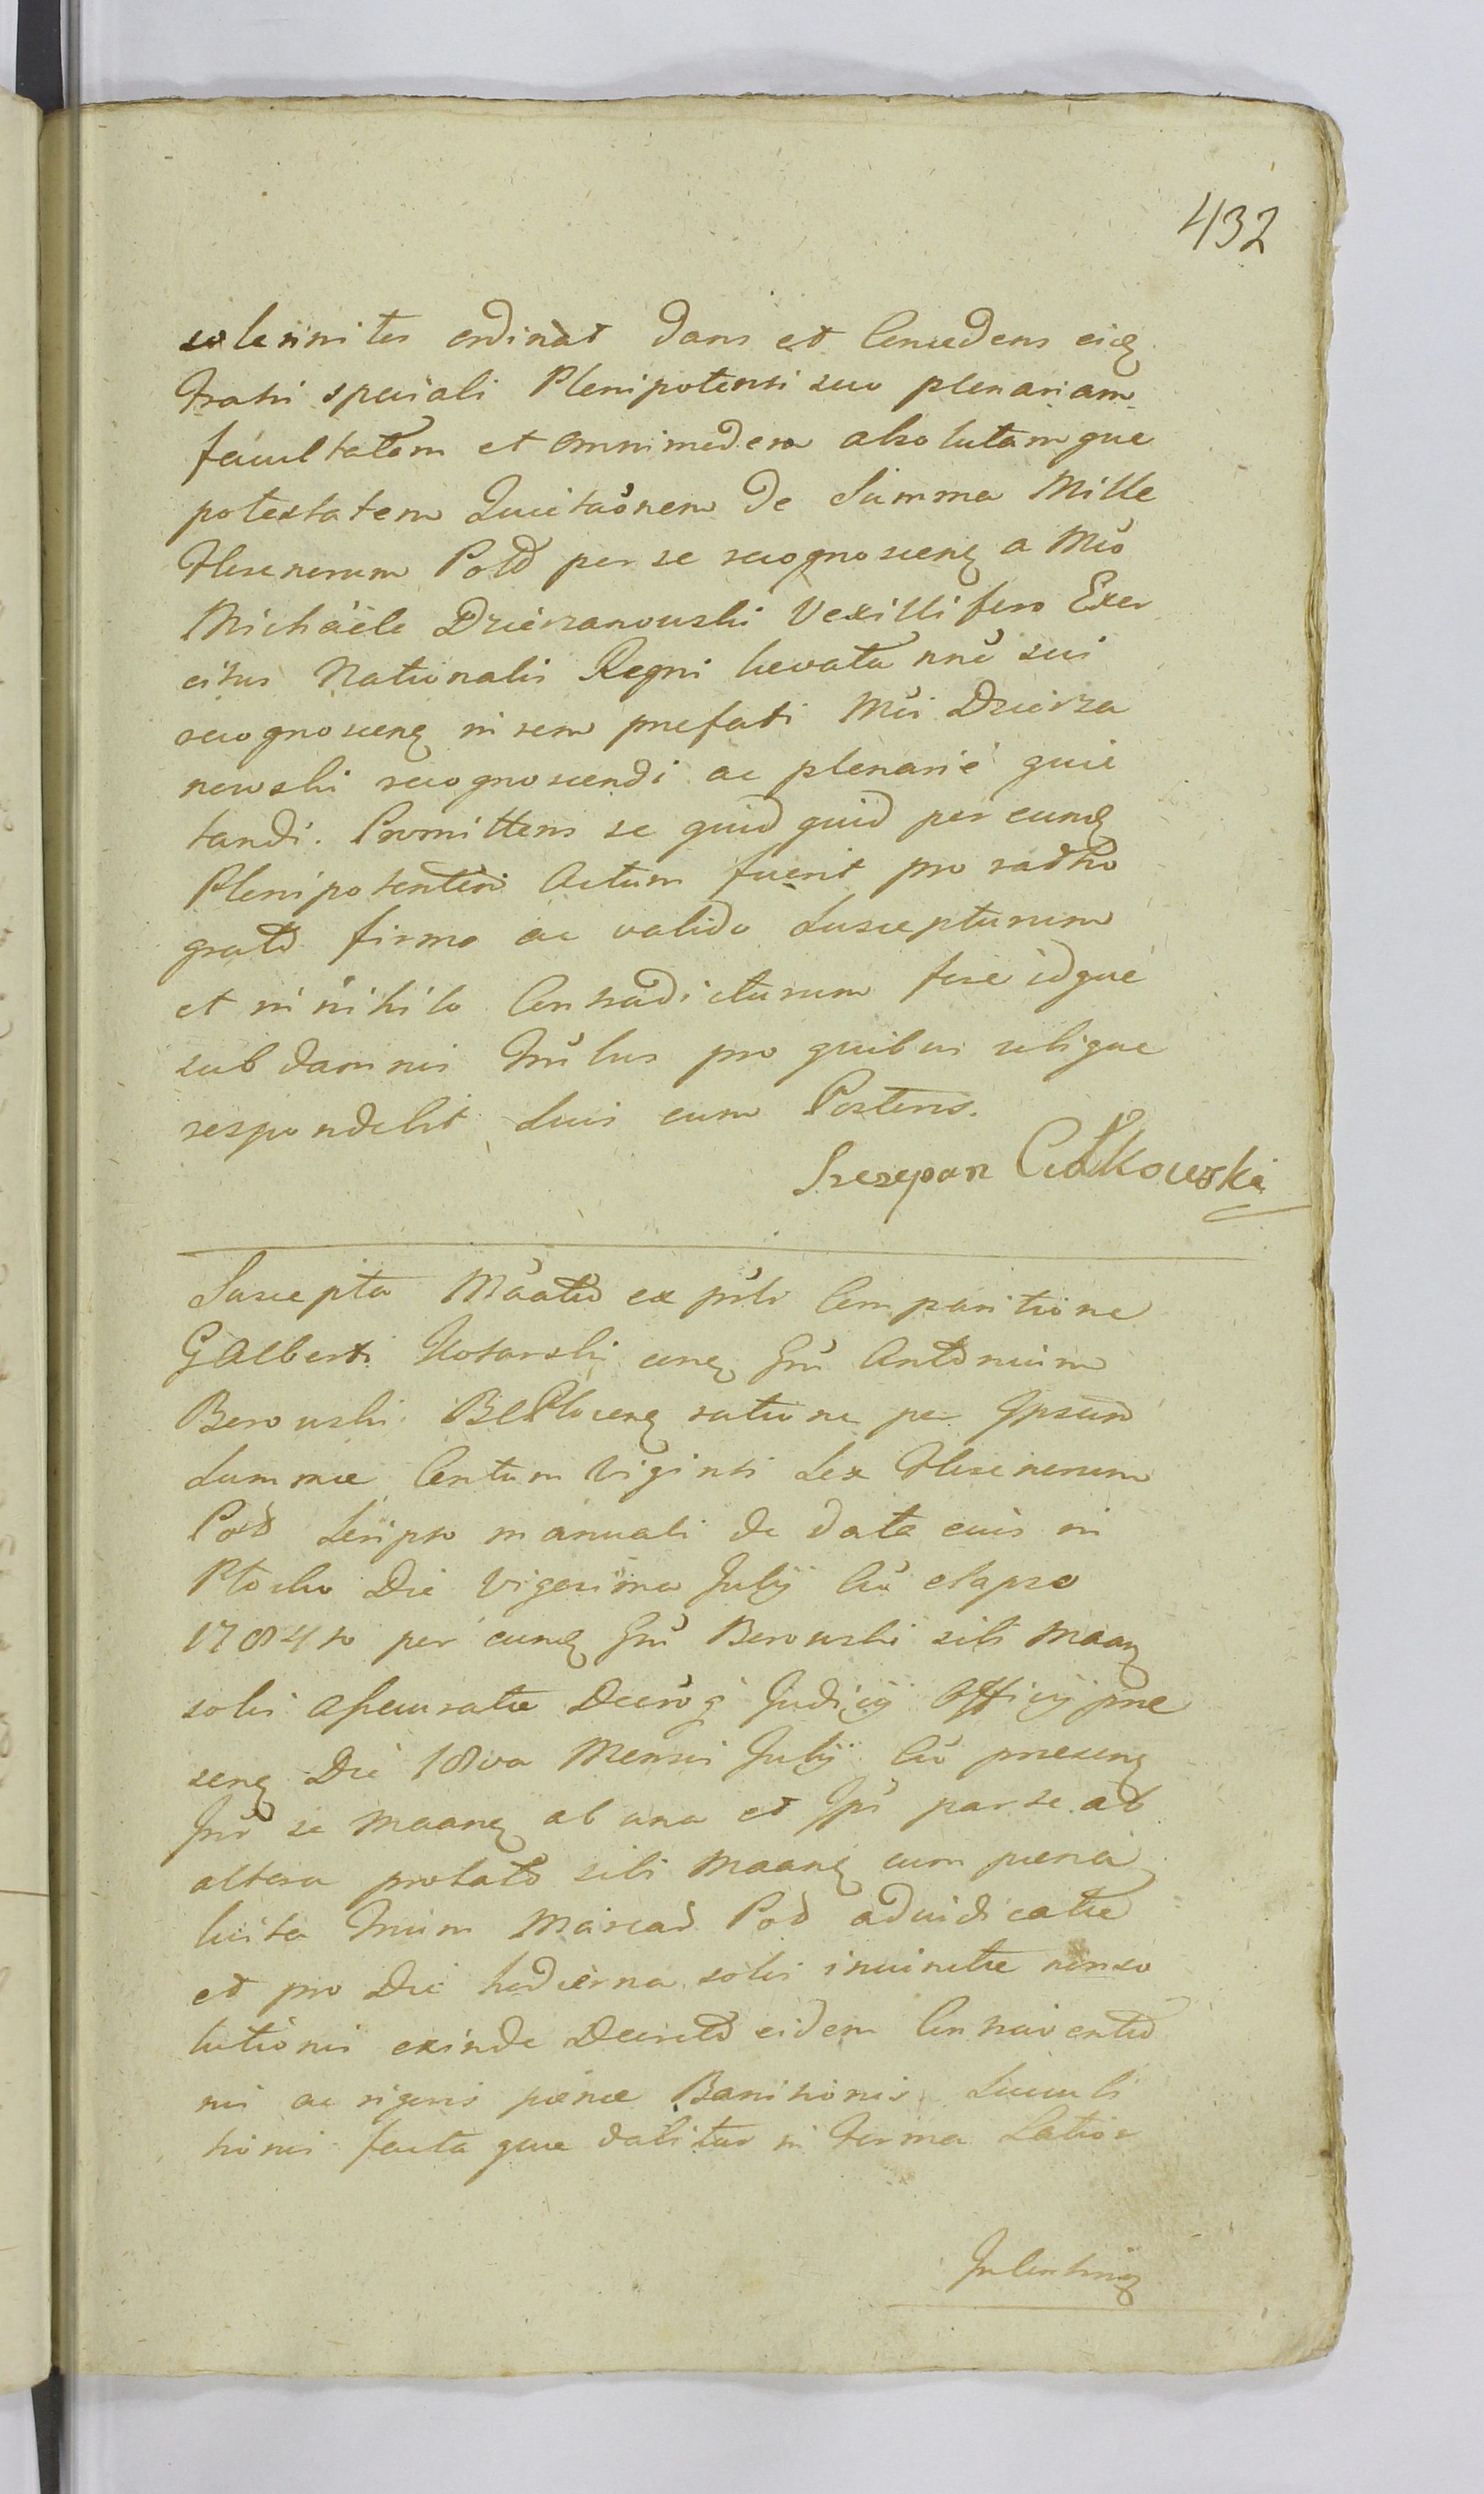 432
solenniter ordinat dans et Concedens eidę
Fratri speciali Plenipotenti suo plenariam
facultatem et omnimodem absolutamque
potestatem Quietaõnem de Summa Mille
Flrenorum Pold per se recognoscenę a Mco
Michaele Dzierzanowski Vexillifero Exer
citus Nationalis Regni levata nnẽ sui
recognoscenę in rem prefati Mci Dzierza
nowski recognoscendi ac plenarie quie
tandi. Promittens se quid quid per eundę
Plenipotentem Actum fuerit pro ratho
grato firmo ac valido Suscepturum
et in nihilo Contradicturum fore idque
sub damnis pro quibus ubique
respondebit Suis cum Posteris.
Szczepan Ciółkowski
Suscepta ex Comparitione
G Alberti Kosarski Gnũ Antonium
Borowski ratione per Ipsum
Summæ Centum Viginti Sex Flrenorum
Pol Scripto manuali de data eius in
Płocko Die Vigesima Julij elapso
1784to per eundę Gnũ Borowski sibi
solvi Judicij Officij præ
senę Die 18va Mensis Julij præsenę
se ab una et Ipũ par se ab
altera probato sibi cum pœna
luita Trium Marcar Pol adiudicatæ
et pro Die hodierna solvi iniunctæ nonso
lutionis exinde Decreto eidem Contraventio
nis ac rigoris pœnæ Banitionis Succubi
tionis facta que dabitur in forma Latior